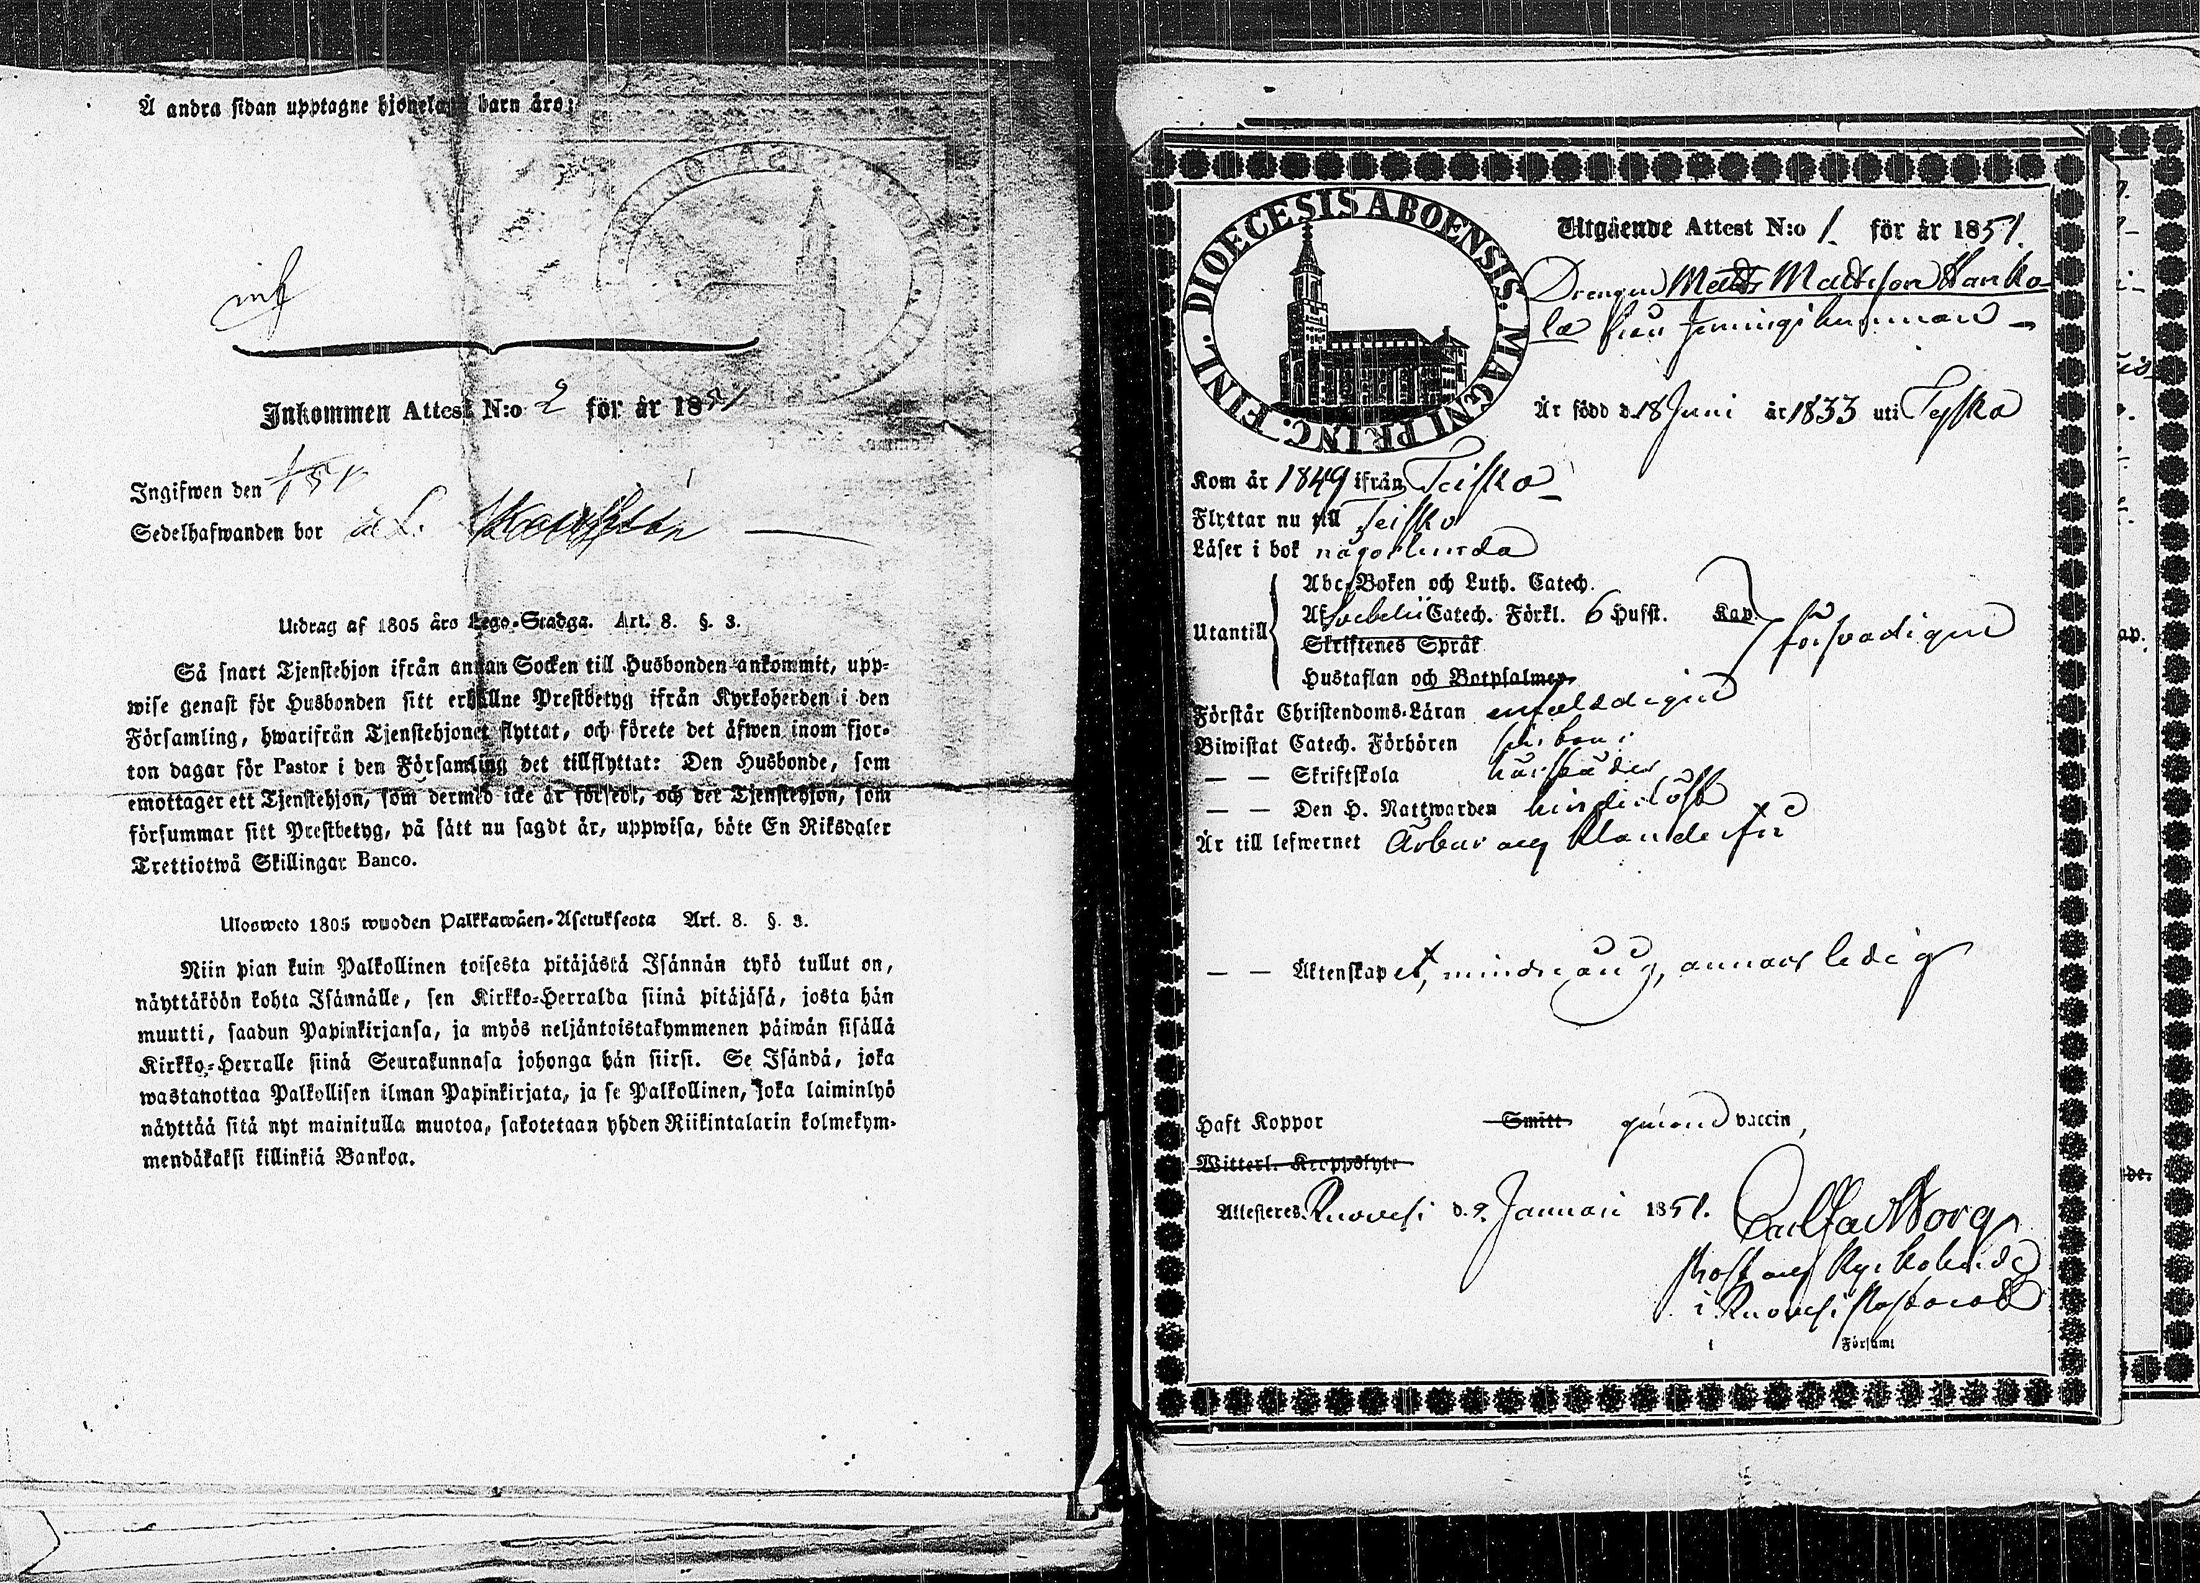 Å andra sidan upptagne hjonelag barn äro:
Inkommen Attest N:o 2 för år 1851
Ingifwen den
Sedelhafwanden bor
Utdrag af 1805 års Lego-Stadga. Art. 8. §. 3.
Så snart Tjenstehjon ifrån annan Socken till Husbonden ankommit, upp-
wise genast för Husbonden sitt erhållne Prestbetyg ifrån Kyrkoherden i den
Församling, hwarifrån Tjenstehjonet flyttat, och förete det äfwen inom fjor-
ton dagar för Pastor i den Församling det tillflyttat: Den Husbonde, som
emottager ett Tjenstehjon, som dermed icke är försedt, och det Tjenstehjon, som
försummar sitt Prestbetyg, på sätt nu sagdt är, uppwisa, böte En Riksdaler
Trettiotwå Skillingar Banco.
Ulosweto 1805 wuoden Palkkawäen-Asetuksesta Art. 8. §. 3.
Niin pian kuin Palkollinen toisesta pitäjästä Isännän tykö tullut on,
näyttäköön kohta Isännälle, sen Kirkko-Herralda siinä pitäjäsä, josta hän
muutti, saadun Papinkirjansa, ja myös neljäntoistakymmenen päiwän sisällä
Kirkko-Herralle siinä Seurakunnasa johonga hän siirsi. Se Isändä, joka
wastanottaa Palkollisen ilman Papinkirjata, ja se Palkollinen, joka laiminlyö
näyttää sitä nyt mainitulla muotoa, sakotetaan yhden Riikintalarin kolmekym-
mendäkaksi killinkiä Bankoa.
DIOECESIS ABOENSIS. MAGNI PRINC. FINL.
Utgående Attest N:o 1. för år 1851.
Drengen Matts Mattsson Hanko-
la från
Är född d. 18 Juni år 1833 uti Teisko
Kom år 1849 ifrån Teisko
Flyttar nu till Teisko
Läser i bok någorlunda
Abc-Boken och Luth. Catech.
Af Svebelii Catech. Förkl. 6 Hufst. Kap.
Utantill
försvarligen
Skriftenes Språk
Hustaflan och Botpsalmer
Förstår Christendoms-Läran enfaldigen
Biwistat Catech. Förhören
— — Skriftskola
— — Den H. Nattwarden
Är till lefwernet ärbar och klanderfri
— — Äktenskapet, annars ledig
Haft Koppor Smitt genom vaccin,
Witterl. Kroppslyte
Attesteras Ruovesi d. 9. Januari 1851.
Prost och Kyrkoherde
i Ruovesi Pastorat
i Församl